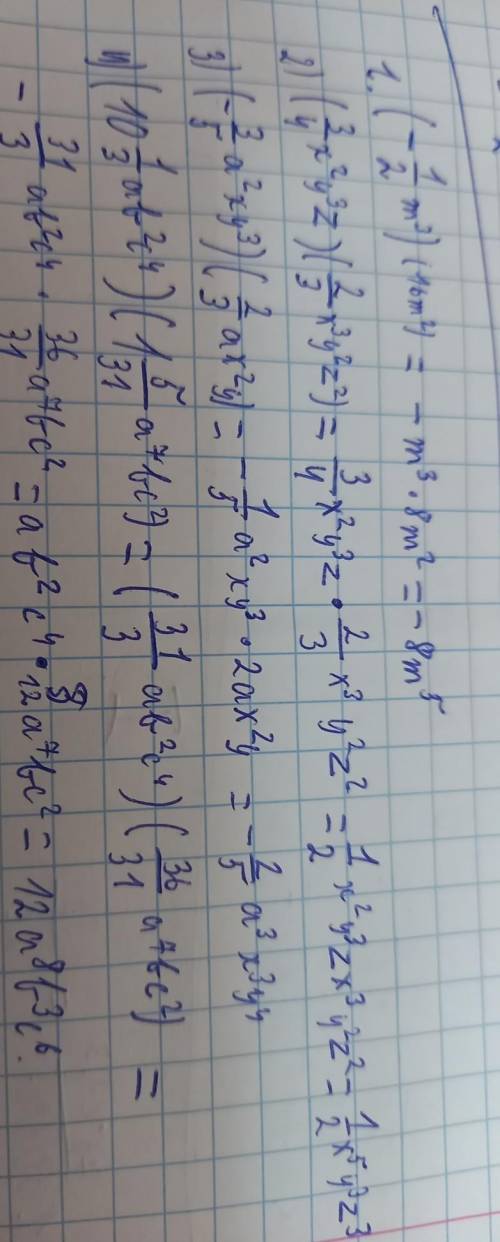 1. (-1/2 m³)(16m²) = -m³·8m² = -8m⁵
2) (3/4 x²y³z)(2/3 x³y²z²) = 3/4 x²y³z · 2/3 x³y²z² = 1/2 x²y³zx³y²z² = 1/2 x⁵y⁵z³
3) (-3/5 a²xy³)(2/3 ax²y) = -1/5 a²xy³ · 2ax²y = -2/5 a³x³y⁴
4) (10 1/3 ab²c⁴)(1 5/31 a⁷bc²) = (31/3 ab²c⁴)(36/31 a⁷bc²) =
- 31/3 ab²c⁴ · 36/31 a⁷bc² = ab²c⁴ · 12a⁷bc² = 12a⁸b³c⁶.